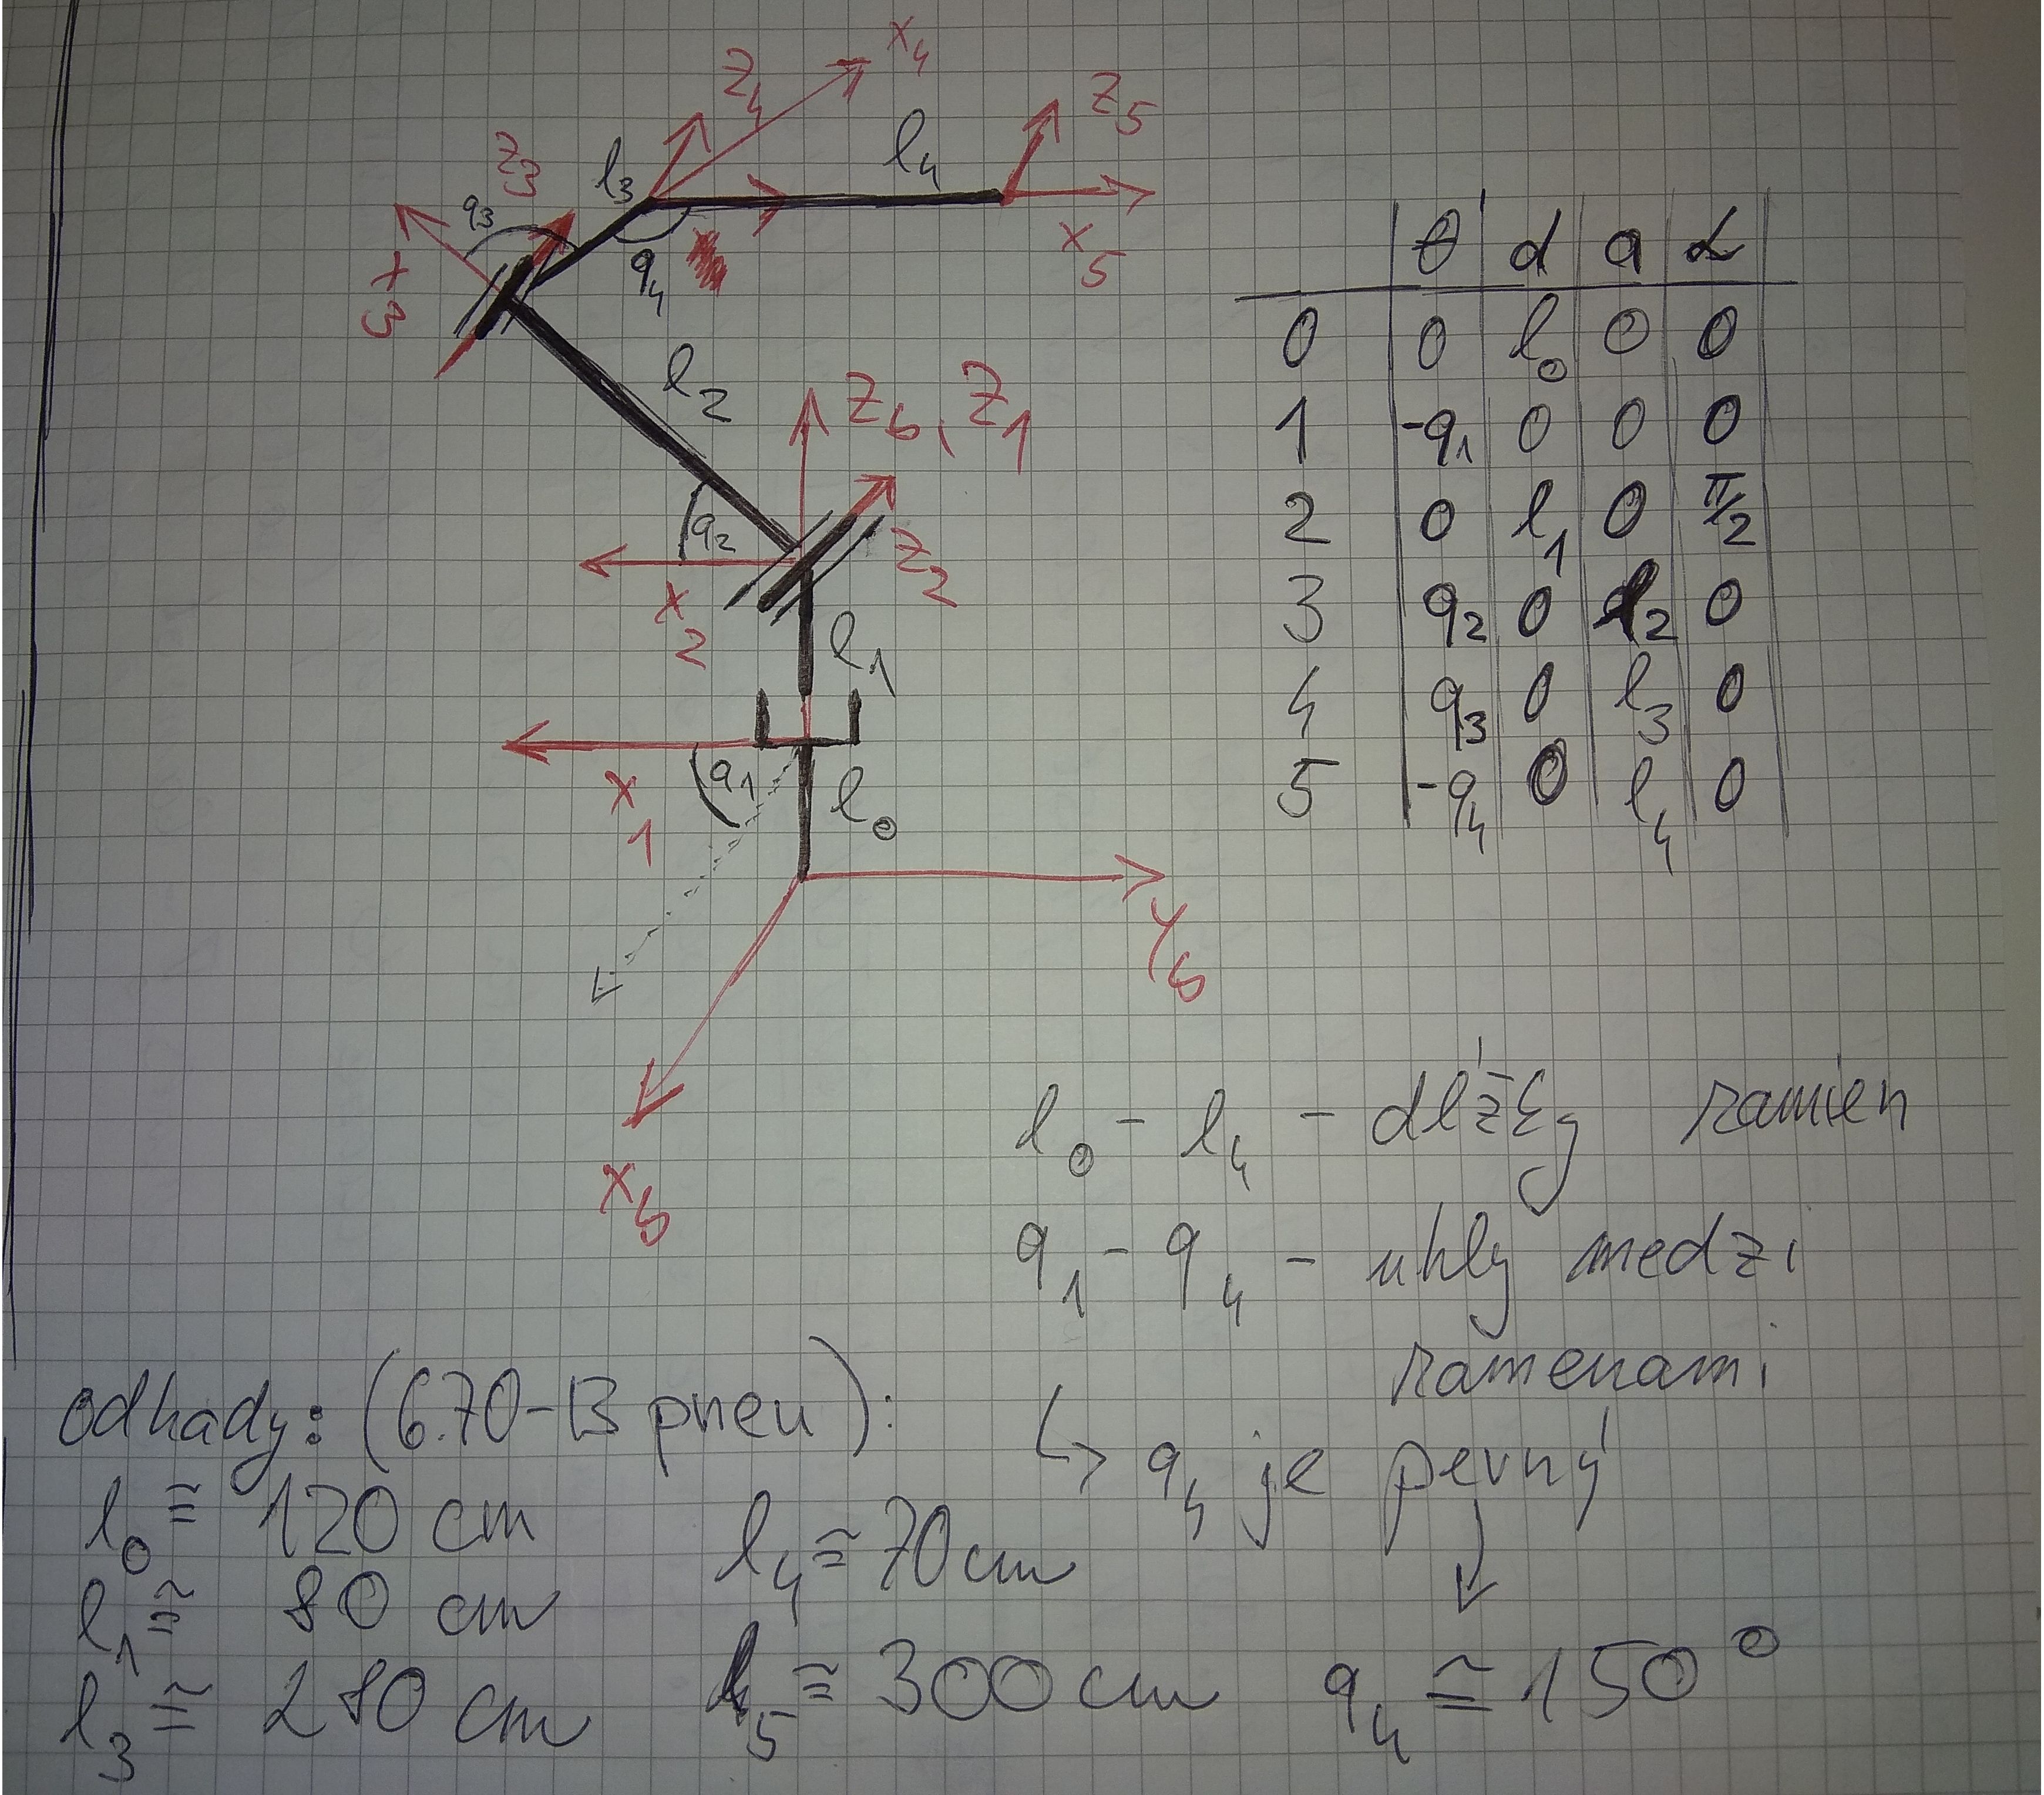 x4
z4
z5
l4
l3
z3
q3
x5
q4
x3
l2
z6, z1
q2
z2
x2
l1
q1
x1
l0
y6
x6
θ d a α
0 0 l0 0 0
1 -q1 0 0 0
2 0 l1 0 π/2
3 q2 0 l2 0
4 q3 0 l3 0
5 -q4 0 l4 0
l0 - l4 - dĺžky ramien
q1 - q4 - uhly medzi
ramenami
↳ q4 je pevný
q4 ≅ 150°
odhady: (6.70-13 pneu):
l0 ≅ 120 cm
l1 ≅ 80 cm
l3 ≅ 280 cm
l4 ≅ 70 cm
l5 ≅ 300 cm